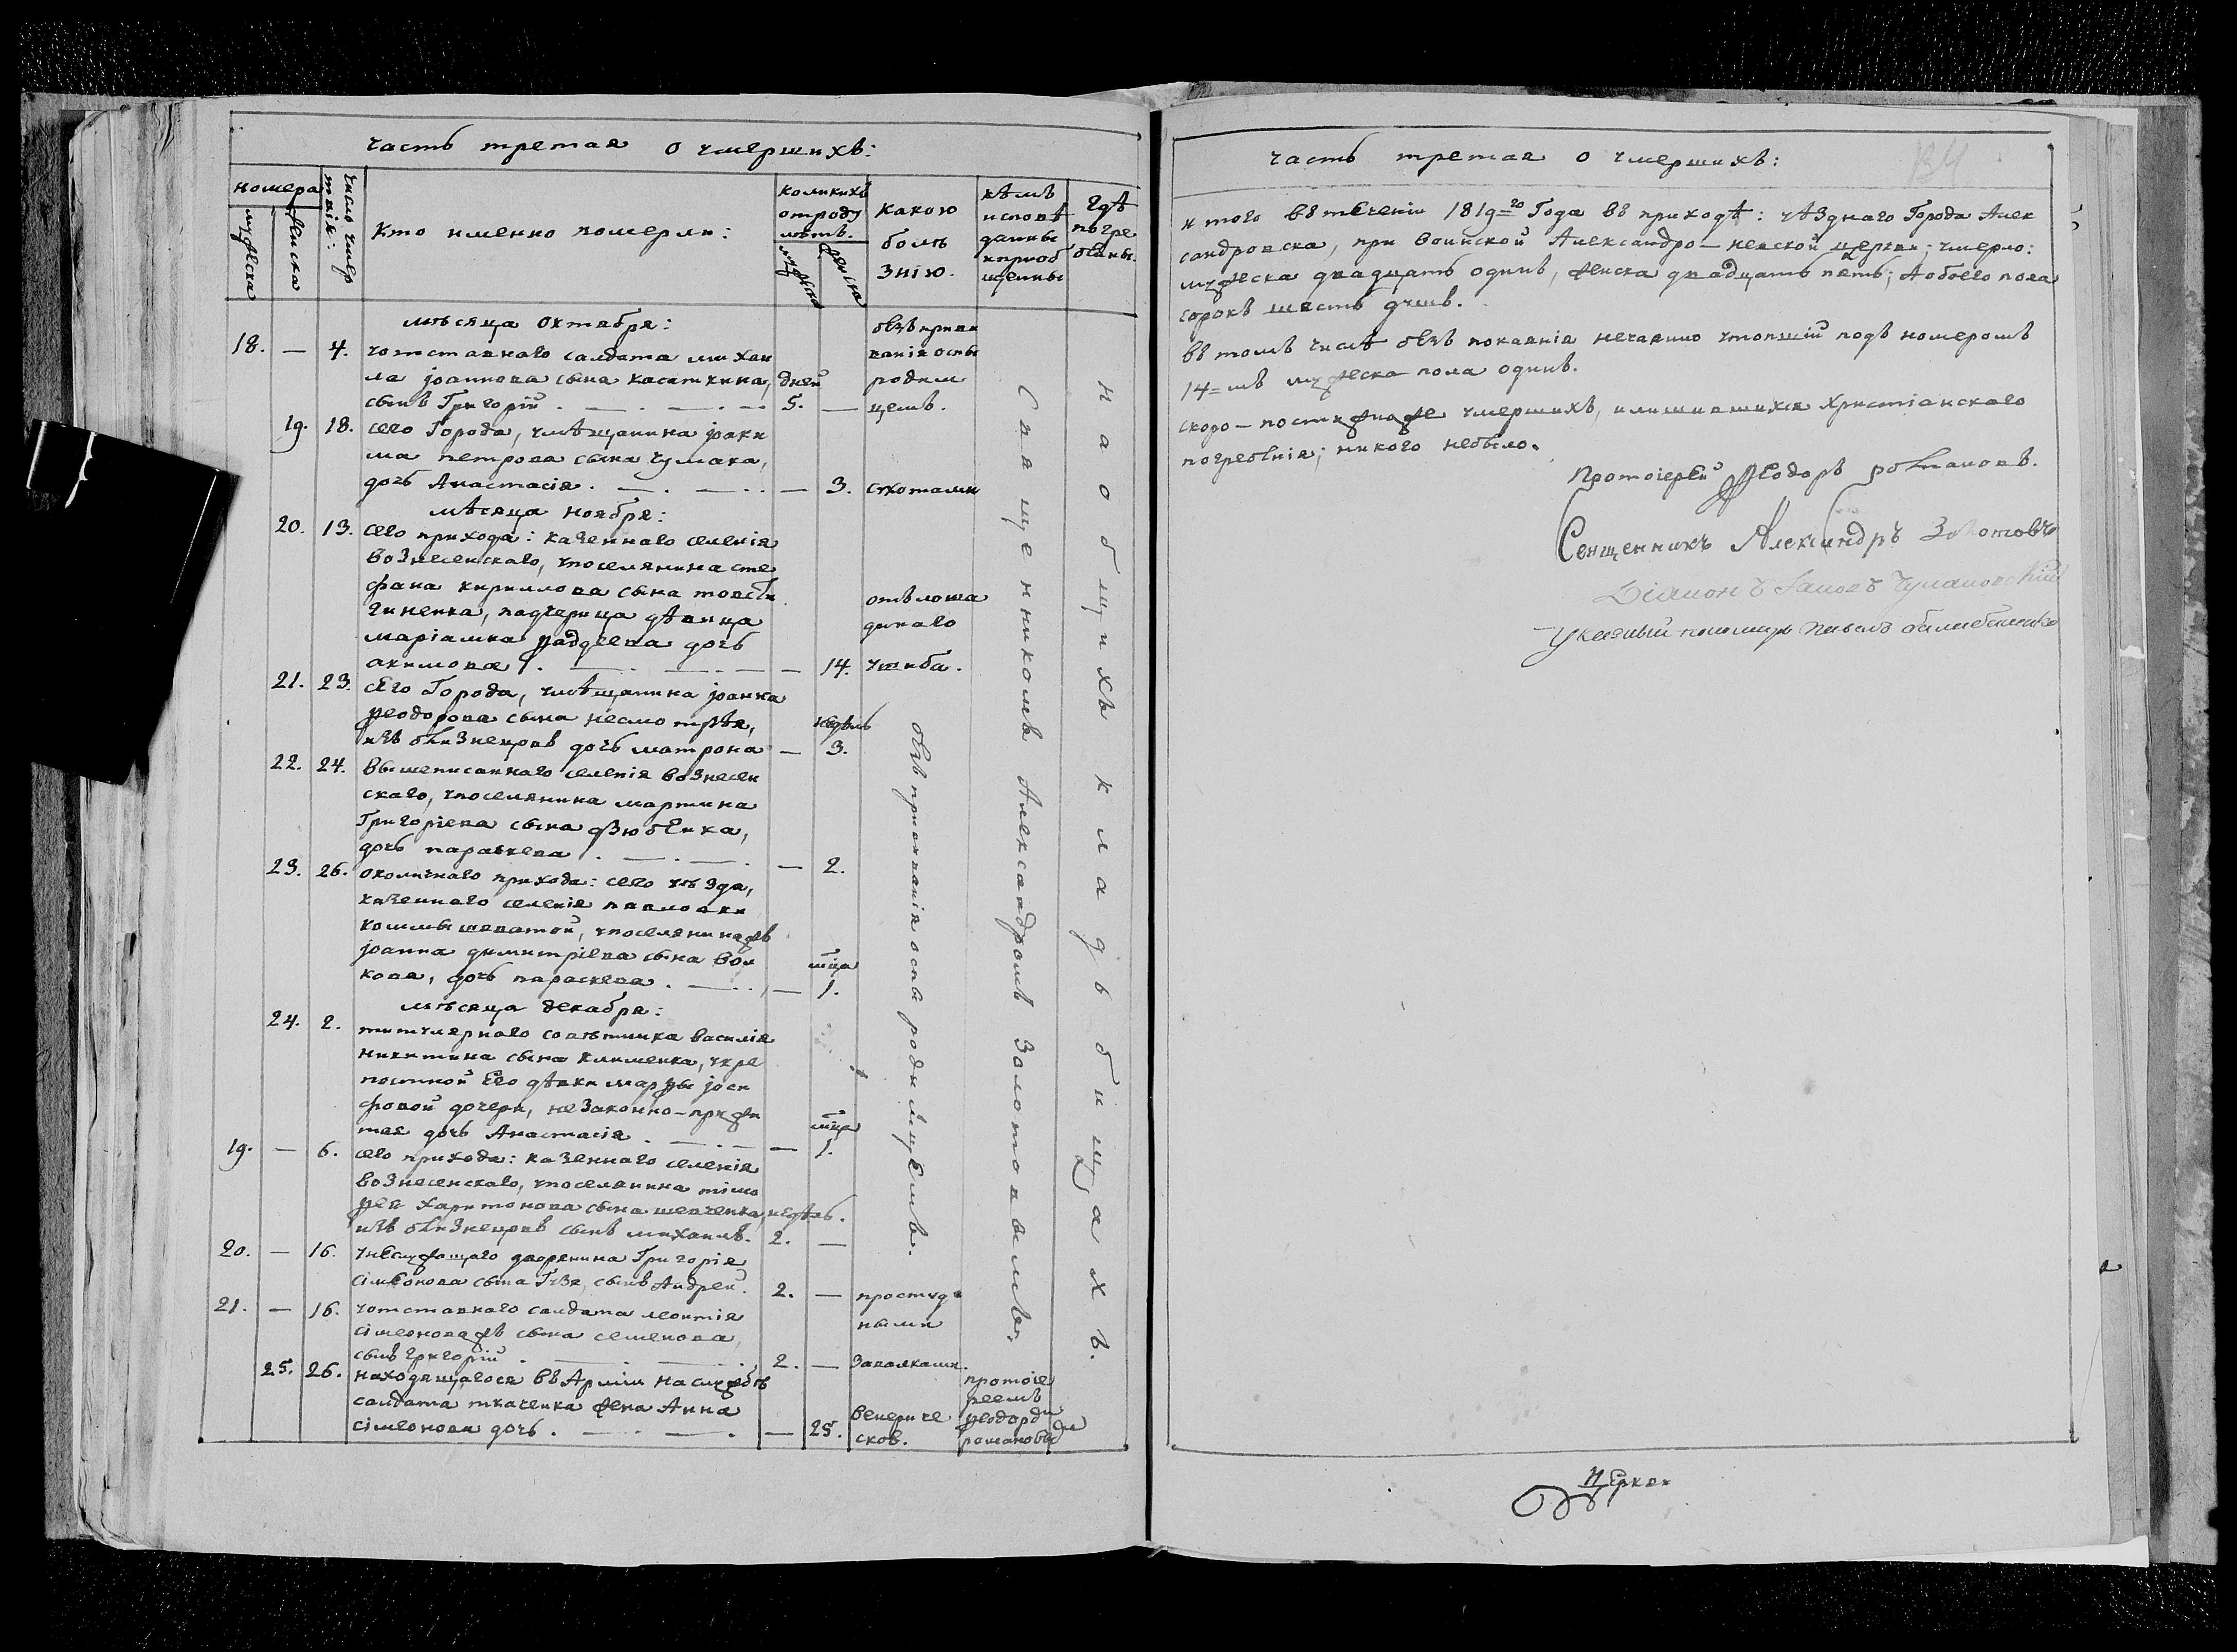 часть третая о умершихъ:
номера
мужеска
женска
число умер
твія:
Кто именно померли:
коликихъ
отроду
лѣтъ.
мужеска
женска
какою
болѣ
знію.
кѣмъ
исповѣ
даны
и приоб
щены
гдѣ
погре
бены.
мѣсяца октября:
18. — 4. уотставнаго салдата михаи
ла іоаннова сына касаткина,
сынъ Григорій . — . — . — дней 5. —
безъ приви
ванія оспы
родим
цемъ.
19. 18. сего города, умѣщанина іоаки
ма петрова сына чумака,
дочь Анастасія . — . — . . — 3. сухотами
мѣсяца ноября:
20. 13. сего прихода: казеннаго селенія
вознесенскаго, упоселянина сте
фана кириллова сына товсти
чиненка, падчерица дѣвица
маріамна фаддеева дочь
акимова . — . — 14.
отъ лоша
динаго
ушиба.
21. 23. сего города, умѣщанина іоанна
феодорова сына несмотрѣя,
изъ близнецовъ дочь матрона — недѣль 3.
22. 24. вышеписаннаго селенія вознесен
скаго, упоселянина мартина
Григоріева сына дзюбенка,
дочь параскева . — . — . — 2.
23. 26. околичнаго прихода: сего уѣзда,
казеннаго селенія павловки
упоселянинажъ
іоанна димитріева сына вол
кова, дочь параскева . — . . — мца 1.
мѣсяца декабря:
24. 2. титулярнаго совѣтника василія
никитина сына клименка, укре
постной его дѣвки марфы іоси
фовой дочери, незаконно-прижи
тая дочь Анастасія . — . — — мца 1.
19. — 6. сего прихода: казеннаго селенія
вознесенскаго, упоселянина тімо
фея харитонова сына шевченка,
изъ близнецовъ сынъ михаилъ. недѣль. 2. —
20. — 16. унеслужащаго дворянина Григорія
сімеонова сына Гузя, сынъ Андрей. 2. — простуд
ными
21. — 16. уотставнаго салдата леонтія
сімеоноважъ сына семенова,
сынъ григорій . — . — . 2. — завалками.
25. 26. находящагося въ Арміи наслужбѣ
салдата ткаченка жена Анна
сімеонова дочь . — . — . — 25. венериче
сков.
протоіе
реемъ
феодоромъ
романовымъ
безъ прививанія оспы родимцемъ.
Священникомъ Александромъ Золотовымъ.
на общихъ кладбищахъ.
часть третая о умершихъ:
итого въ теченіи 1819=го Года въ приходѣ: уѣзднаго Города Алек
сандровска, при воинской Александро-невской церкви: умерло:
мужеска двадцать одинъ, женска двадцать пять; Аобоего пола
сорокъ шесть душъ.
въ томъ числѣ безъ покаянія нечаянно утопшій подъ номеромъ
14=мъ мужеска пола одинъ.
скоро-постижноже умершихъ, илишившихся Христіанскаго
погребенія; никого небыло.
Протоіерей Феодоръ романовъ.
Священникъ Александръ Золотовъ
Діаконъ
Указный пономарь Павелъ